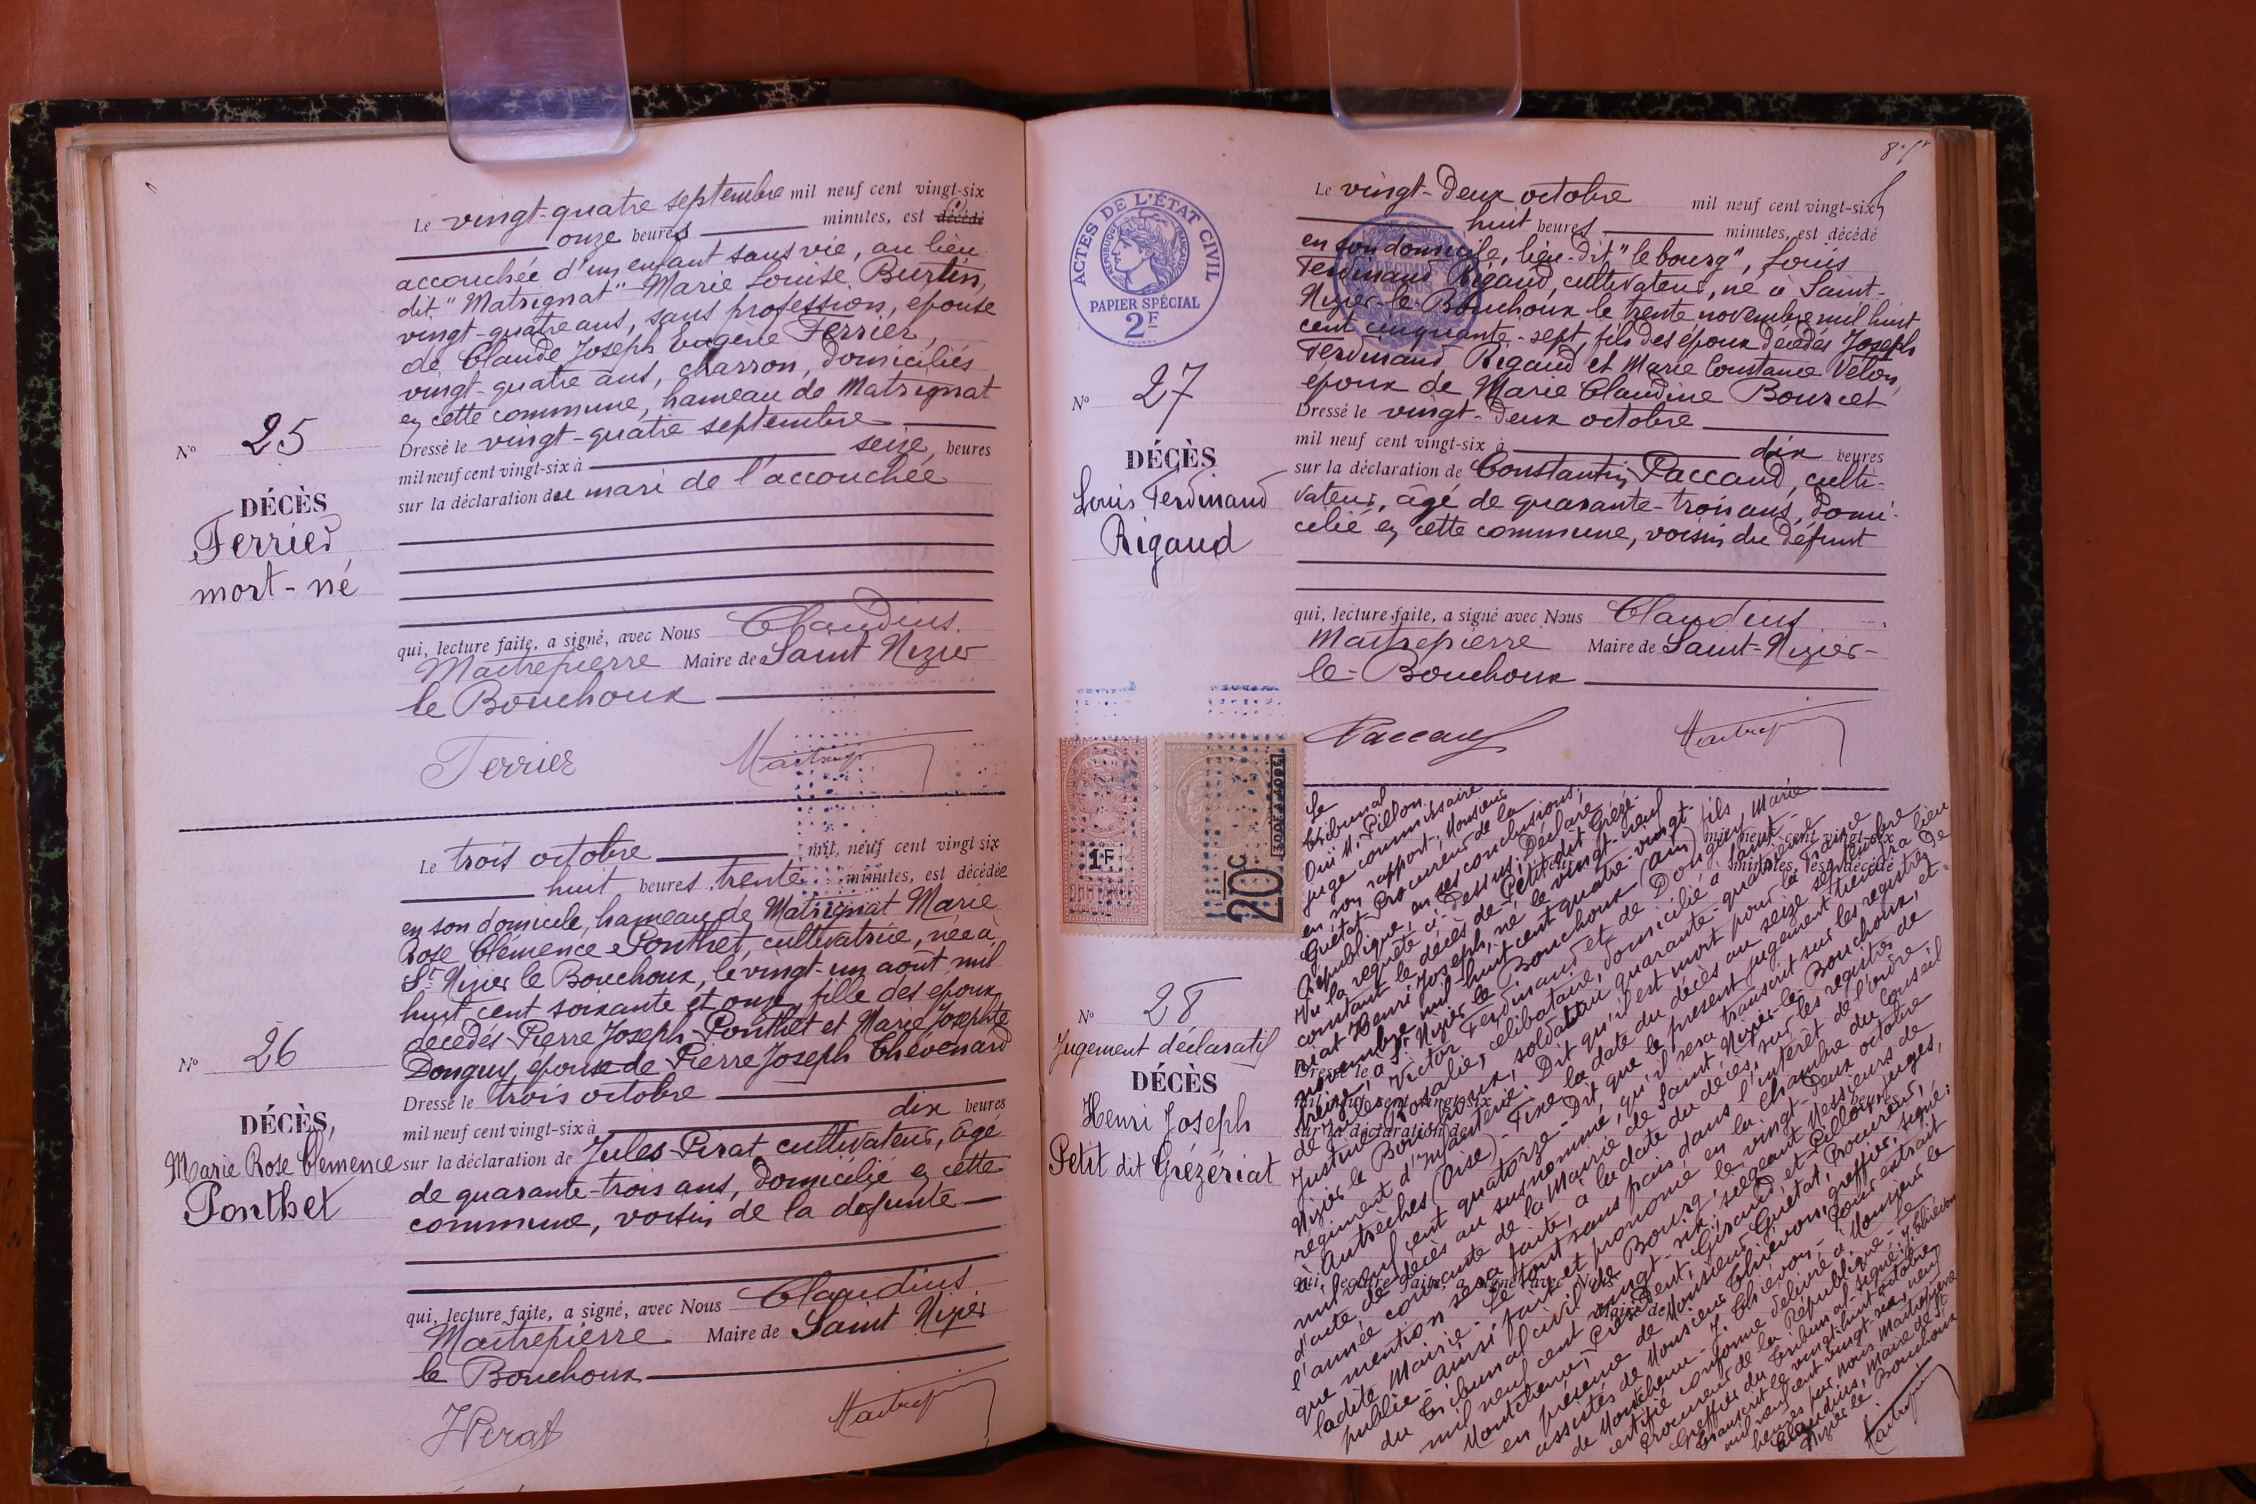 N° 25
DÉCÈS
Ferrier
mort-né
Le vingt-quatre septembre mil neuf cent vingt-six
onze heures minutes, est décédé
accouchée d'un enfant sans vie, au lieu
dit "Matrignat" Marie Louise Burtin,
vingt-quatre ans, sans profession, épouse
de Claude Joseph Eugène Ferrier,
vingt-quatre ans, charron, domiciliés
en cette commune, hameau de Matrignat
Dressé le vingt-quatre septembre
mil neuf cent vingt-six à seize heures
sur la déclaration du mari de l'accouchée
qui, lecture faite, a signé, avec Nous Claudius
Maitrepierre Maire de Saint Nizier
le Bouchoux
Ferrier
N° 26
DÉCÈS,
Marie Rose Clemence
Ponthet
Le trois octobre mil neuf cent vingt six
huit heures trente minutes, est décédée
en son domicile, hameau de Matrignat Marie
Rose Clemence Ponthet, cultivatrice, née à
St Nizier le Bouchoux, le vingt-un août mil
huit cent soixante et onze, fille des époux
décédés Pierre Joseph Ponthet et Marie Josephte
Donguy, épouse de Pierre Joseph Thevenard
Dressé le trois octobre
mil neuf cent vingt-six à dix heures
sur la déclaration de Jules Pirat cultivateur, âgé
de quarante-trois ans, domicilié en cette
commune, voisin de la défunte
qui, lecture faite, a signé, avec Nous Claudius
Maitrepierre Maire de Saint Nizier
le Bouchoux
ACTES DE L'ÉTAT CIVIL
PAPIER SPÉCIAL
2F
N° 27
DÉCÈS
Louis Ferdinand
Rigaud
Le vingt-deux octobre mil neuf cent vingt-six
huit heures minutes, est décédé
en son domicile, lieu-dit "le bourg", Louis
Ferdinand Rigaud, cultivateur, né à Saint-
Nizier-le Bouchoux le trente novembre mil huit
cent cinquante-sept, fils des époux décédés Joseph
Ferdinand Rigaud et Marie Constance Velon,
époux de Marie Claudine Bourcet
Dressé le vingt-deux octobre
mil neuf cent vingt-six à dix heures
sur la déclaration de Constantin Paccaud, culti-
vateur, âgé de quarante-trois ans, domi-
cilié en cette commune, voisin du défunt
qui, lecture faite, a signé avec Nous Claudius
Maitrepierre Maire de Saint-Nizier-
le-Bouchoux
Paccaud
1F
20c
N° 28
Jugement déclaratif
DÉCÈS
Henri Joseph
Petit dit Grézériat
Le
tribunal
Ouï M. Pillon
juge commissaire
en son rapport, Monsieur
Guétat, Procureur de la
République, en ses conclusions,
Vu la requête ci-dessus, Déclare
constant le décès de Petit dit Grézé-
riat Henri Joseph, né le vingt-neuf
novembre mil huit cent quatre-vingt-
treize, à St Nizier le Bouchoux (Ain) fils
de Victor Ferdinand et de Donguy Marie
Justine Rosalie, célibataire, domicilié à Saint-
Nizier le Bouchoux, soldat au quarante-quatrième
régiment d'infanterie. Dit qu'il est mort pour la France
à Autrèches (Oise) - Fixe la date du décès au seize septembre
mil neuf cent quatorze - Dit que le présent jugement tiendra lieu
d'acte de décès au susnommé, qu'il sera transcrit sur les registres de
l'année courante de la Mairie de Saint Nizier-le-Bouchoux, et
que mention sera faite, à la date du décès, sur les registres de
ladite Mairie - Le tout sans frais dans l'intérêt de l'ordre
public - ainsi fait et prononcé en la chambre du conseil
du Tribunal civil de Bourg, le vingt-deux octobre
mil neuf cent vingt-six, siégeant Messieurs de
Montchenu, Président, Giraud, et Pillon, juges,
en présence de Monsieur Guétat, Procureur,
assistés de Monsieur Thiévon, greffier, signé:
de Montchenu - J. Thiévon - Pour extrait
certifié conforme délivré à Monsieur le
Procureur de la République - Le
Greffier du Tribunal signé: J. Thiévon
transcrit le vingt-huit octobre
mil neuf cent vingt-six, neuf
heures par Nous Maitrepierre
Claudius, Maire de St
Nizier le Bouchoux